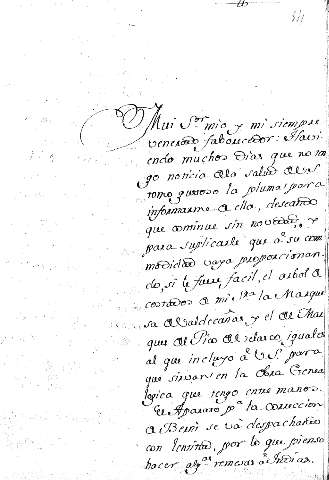 Mui S.or mio y mi siempre
venerado faborecedor: Havi
endo muchos dias que no ten
go noticia de la salud de VS
tomo gustoso la pluma para
informarme de ella, deseando
que continue sin novedad, y
para suplicarle que a su com
modidad vaya proporcionan
do, si le fuere facil, el arbol de
costados de mi S.ra la Marque
sa de Valdecañas y el de Mar
ques del Pico de Velasco, igual
al que incluyo a VS. para
que sirvan en la obra Genea
logica que tengo entre manos.
El Aparato p.a la correccion
de Beni se va despachando
con lentitud, por lo que pienso
hacer alg.as remesas a Indias.